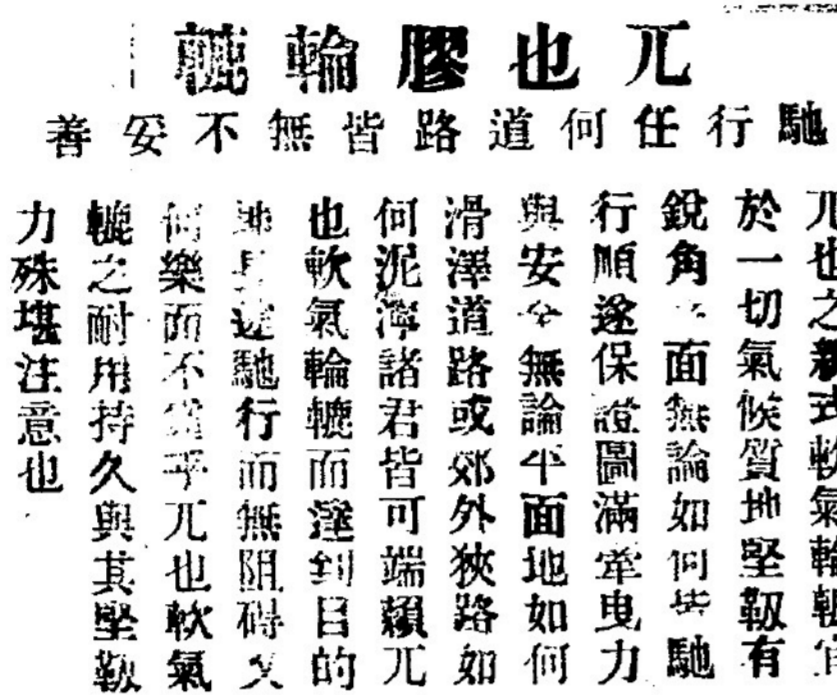 兀也膠輪轆
馳行任何道路皆無不妥善
兀也之新式軟氣輪轆宜
於一切氣候質地堅韌有
銳角之面無論如何皆馳
行順遂保證圖滿牽曳力
與安全無論平面地如何
滑澤道路或郊外狹路如
何泥濘諸君皆可端賴兀
也軟氣輪轆而達到目的
地長途馳行而無阻碍又
何樂而不為乎兀也軟氣
轆之耐用持久與其堅韌
力殊堪注意也